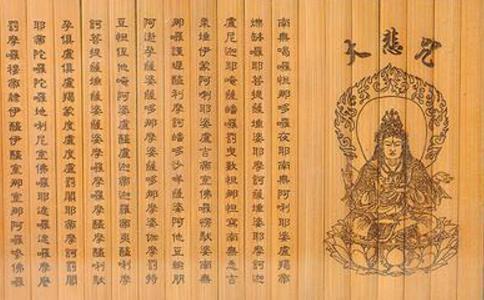 大悲咒
南無喝囉怛那哆囉夜耶南無阿唎耶婆盧羯帝
爍缽囉耶菩提薩埵婆耶摩訶薩埵婆耶摩訶迦
盧尼迦耶唵薩皤囉罰曳數怛那怛寫南無悉吉
栗埵伊蒙阿唎耶婆盧吉帝室佛囉楞馱婆南無
那囉謹墀醯利摩訶皤哆沙咩薩婆阿他豆輸朋
阿逝孕薩婆薩哆那摩婆薩哆那摩婆伽摩罰特
豆怛侄他唵阿婆盧醯盧迦帝迦羅帝夷醯唎摩
訶菩提薩埵薩婆薩婆摩囉摩囉摩醯摩醯唎馱
孕俱盧俱盧羯蒙度盧度盧罰闍耶帝摩訶罰闍
耶帝陀囉陀囉地唎尼室佛囉耶遮囉遮囉麼麼
罰摩囉穆帝隸伊醯伊醯室那室那阿囉參佛囉